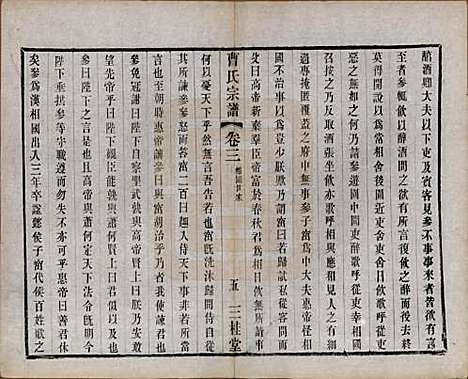 醇酒卿大夫以下吏及賓客見參不事事來者皆欲有言
至者參輒飲以醇酒間之欲有所言復飲之醉而後去終
莫得開說以爲常相舍後園近吏舍吏舍日飲歌呼從吏
惡之無如之何乃請參遊園中聞吏醉歌呼從吏幸相國
召按之乃反取酒張坐飲亦歌呼與相應和參見人之有細
過專掩匿覆蓋之府中無事參子窋爲中大夫惠帝怪相
國不治事以爲豈少朕歟乃謂窋曰若歸試私從容問
父曰高帝新棄羣臣帝富於春秋君爲相日飲無所請事
曹氏宗譜
卷三
五
三桂堂
何以憂天下乎然無言吾告若也窋既洗沐歸閒侍自從
其所諫參參怒而笞窋二百曰趣入侍天下事非若所當
言也至朝時惠帝讓參曰與窋胡治乎乃者我使諫君也
參免冠謝曰陛下自察聖武孰與高帝上曰朕乃安敢
望先帝乎曰陛下觀臣能孰與蕭何賢上曰君似不及也
參曰陛下言之是也且高帝與蕭何定天下法令既明今
陛下垂拱參等守職遵而勿失不亦可乎惠帝曰善君休
矣參爲漢相國出入三年卒諡懿侯子窋代侯百姓歌之